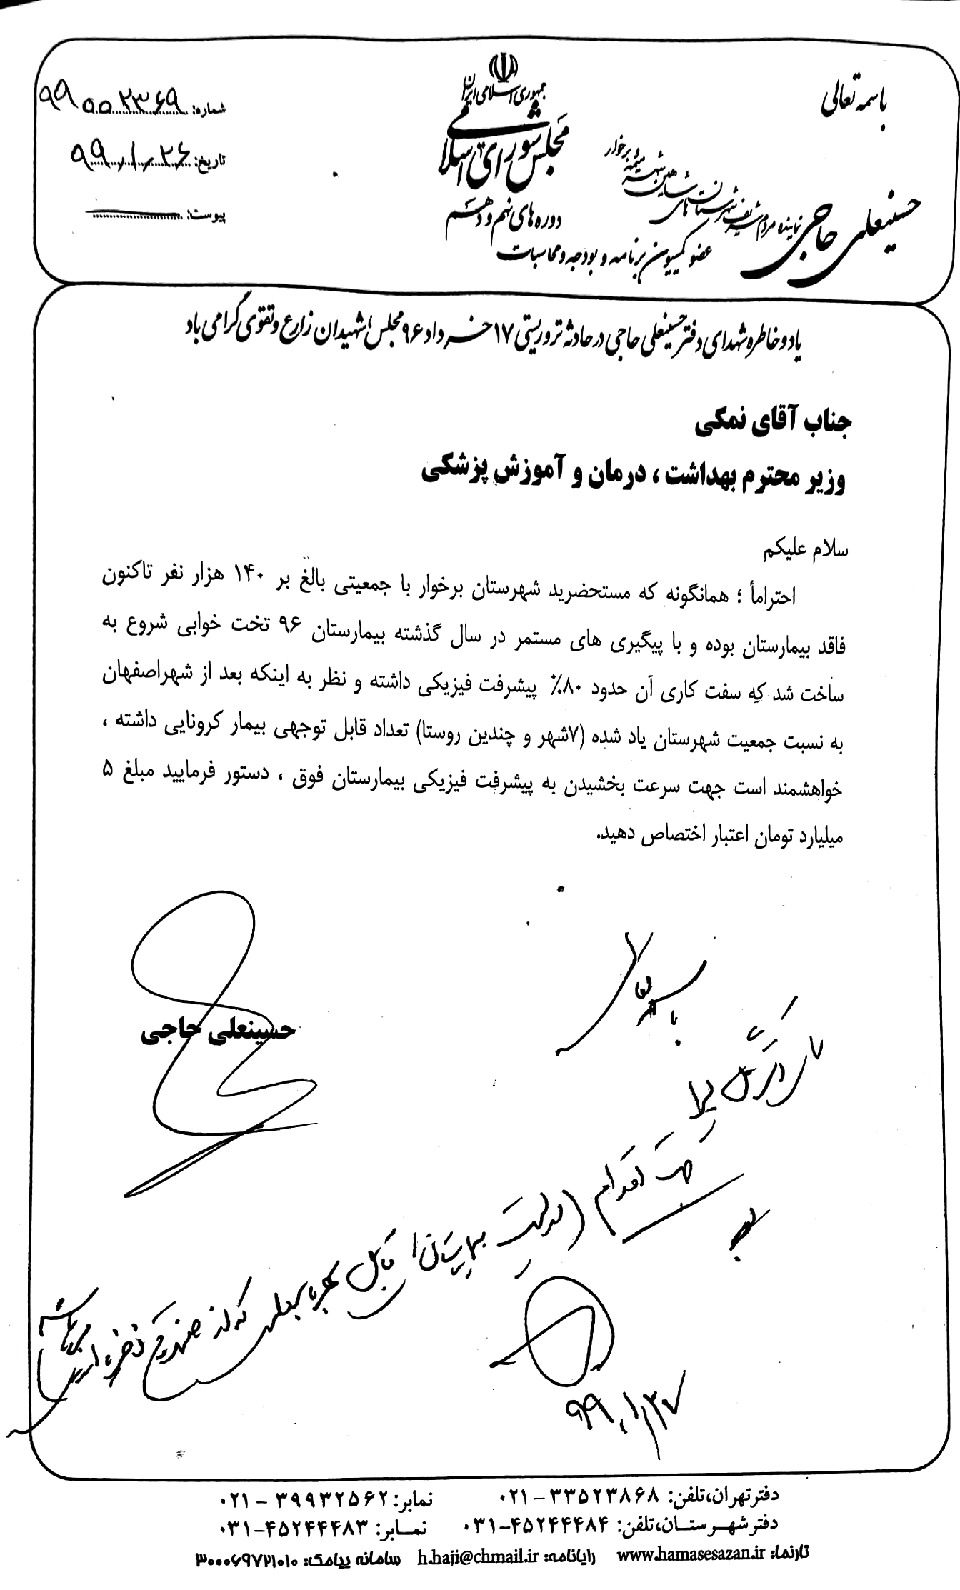 باسمه تعالی
جمهوری اسلامی ایران
مجلس شورای اسلامی
دوره های نهم و دهم
شماره: ۹۹۰۰۲۳۶۹
تاریخ: ۹۹/۱/۲۶
پیوست:
حسینعلی حاجی
نماینده مردم شریف شهرستان های شاهین شهر و میمه و برخوار
عضو کمیسیون برنامه و بودجه و محاسبات
یاد و خاطره شهدای دفتر حسینعلی حاجی در حادثه تروریستی ۱۷ خرداد ۹۶ مجلس (شهیدان زارع و تقوی) گرامی باد
جناب آقای نمکی
وزیر محترم بهداشت ، درمان و آموزش پزشکی
سلام علیکم
احتراماً ؛ همانگونه که مستحضرید شهرستان برخوار با جمعیتی بالغ بر ۱۴۰ هزار نفر تاکنون
فاقد بیمارستان بوده و با پیگیری های مستمر در سال گذشته بیمارستان ۹۶ تخت خوابی شروع به
ساخت شد که سفت کاری آن حدود ۸۰٪ پیشرفت فیزیکی داشته و نظر به اینکه بعد از شهراصفهان
به نسبت جمعیت شهرستان یاد شده (۷شهر و چندین روستا) تعداد قابل توجهی بیمار کرونایی داشته ،
خواهشمند است جهت سرعت بخشیدن به پیشرفت فیزیکی بیمارستان فوق ، دستور فرمایید مبلغ ۵
میلیارد تومان اعتبار اختصاص دهید.
حسینعلی حاجی
باسمه تعالی
جهت اقدام
بیمارستان قابل بهره برداری که از صندوق ذخیره ارزی
۹۹/۱/۲۷
دفتر تهران،تلفن: ۳۳۵۲۳۸۶۸ – ۰۲۱ نمابر: ۳۹۹۳۲۵۶۲ – ۰۲۱
دفتر شهرستان،تلفن: ۴۵۲۴۴۴۸۴–۰۳۱ نمابر: ۴۵۲۴۴۴۸۳–۰۳۱
تارنما: www.hamasesazan.ir رایانامه: h.haji@chmail.ir سامانه پیامک: ۳۰۰۰۶۹۷۲۱۰۱۰